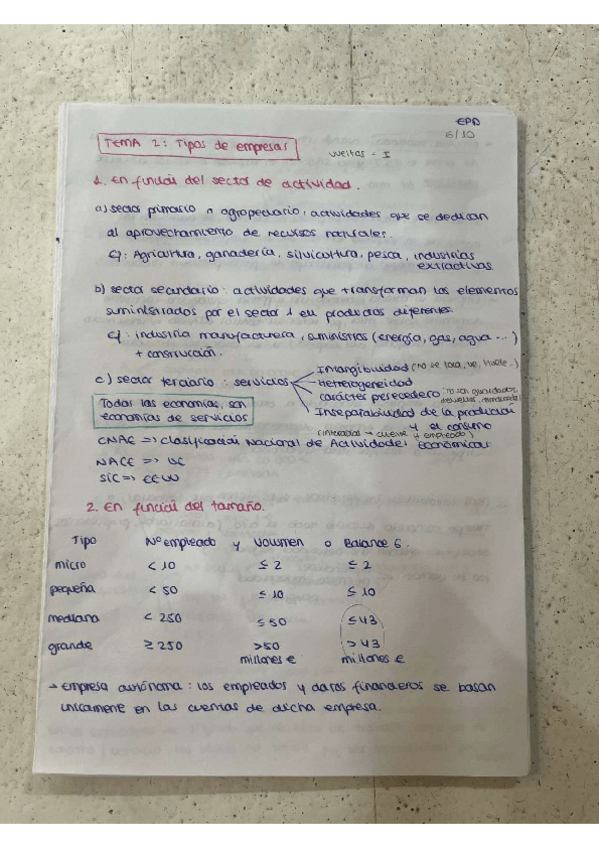 EPD
6/10
TEMA 2: Tipos de empresas
vueltas = I
1. En función del sector de actividad.
a) sector primario o agropecuario: actividades que se dedican
al aprovechamiento de recursos naturales.
Ej: Agricultura, ganadería, silvicultura, pesca, industrias
extractivas
b) sector secundario: actividades que transforman los elementos
suministrados por el sector 1 en productos diferentes.
ej: industria manufacturera, suministros (energía, gas, agua ...)
+ construcción.
c) sector terciario: servicios
Intangibilidad (no se toca, ve, huele..)
Heterogeneidad
carácter perecedero (no son
Inseparabilidad de la producción
y el consumo
(interacción → cliente y empleado)
Todas las economías, son
economías de servicios
CNAE => Clasificación Nacional de Actividades Económicas
NACE => UE
SIC => EEUU
2. En función del tamaño.
Tipo Nº empleado y Volumen o Balance G.
micro < 10 ≤ 2 ≤ 2
pequeña < 50 ≤ 10 ≤ 10
mediana < 250 ≤ 50 ≤ 43
grande ≥ 250 > 50 > 43
millones € millones €
→ Empresa autónoma: los empleados y datos financieros se basan
únicamente en las cuentas de dicha empresa.